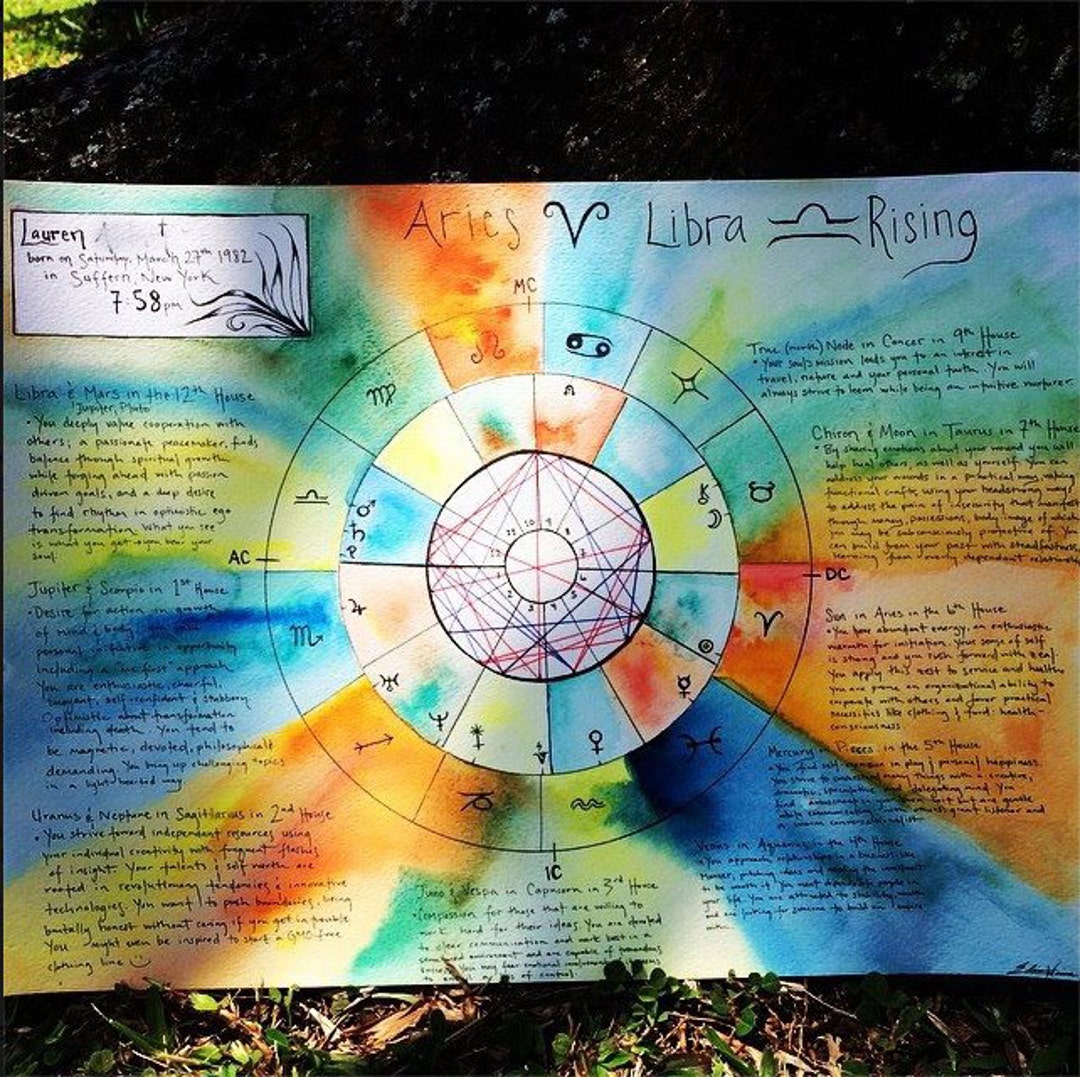 Aries ♈ Libra ♎ Rising
Lauren
born on Saturday, March 27th 1982
in Suffern, New York
7:58pm
MC
AC
DC
IC
Libra & Mars in the 12th House
Jupiter, Pluto
• You deeply value cooperation with
others; a passionate peacemaker, finds
balance through spiritual growth
while forging ahead with passion
driven goals, and a deep desire
to find rhythm in optimistic ego
transformation. What you see
is what you get - you bear your
soul.
Jupiter & Scorpio in 1st House
• Desire for action in growth
of mind & body
personal initiative in opportunity
including a approach
You are enthusiastic, cheerful,
buoyant, self-confident & stubborn
Optimistic about transformation
including death. You tend to
be magnetic, devoted, philosophical &
demanding. You bring up challenging topics
in a light-hearted way
Uranus & Neptune in Sagittarius in 2nd House
• You strive toward independent resources using
your individual creativity with frequent flashes
of insight. Your talents & self worth are
rooted in revolutionary tendencies & innovative
technologies. You want to push boundaries, being
brutally honest without caring if you get in trouble
You might even be inspired to start a GMO-free
clothing line
Juno & Vespa in Capricorn in 3rd House
• Compassion for those that are willing to
work hard for their ideas You are devoted
to clear communication and work best in a
environment and are capable of tremendous
You may fear emotional involvement
loss of control
True (north) Node in Cancer in 9th House
• Your soul's mission leads you to an interest in
travel, nature and your personal truth. You will
always strive to learn while being an intuitive nurturer.
Chiron & Moon in Taurus in 7th House
• By sharing emotions about your wound you will
help heal others, as well as yourself. You can
address your wounds in a practical way, making
functional crafts, using your headstrong way
to address the pain of insecurity that manifest
through money, possessions, body image of which
you may be subconsciously protective of. You
can build from your past with steadfastness,
learning from overly dependent relationships
Sun in Aries in the 6th House
• You have abundant energy, an enthusiastic
warmth for initiation. Your sense of self
is strong and you rush forward with zeal.
You apply this zest to service and health
you are prone an organizational ability to
cooperate with others and favor practical
necessities like clothing & food: health-
consciousness
Mercury in Pisces in the 5th House
• You find self expression in play & personal happiness.
You strive to many things with a creative,
dramatic, speculative and delegating mind. You
find amusement in your own but are gentle
while communicating listener and
conversationalist
Venus in Aquarius in the 4th House
• You approach relationships in a businesslike
manner, pitching ideas and the investment
to be worth it. You want people in
your life. You are attracted to
and are looking for someone to build an empire
with
12 11 10 9 8 7 6 5 4 3 2 1